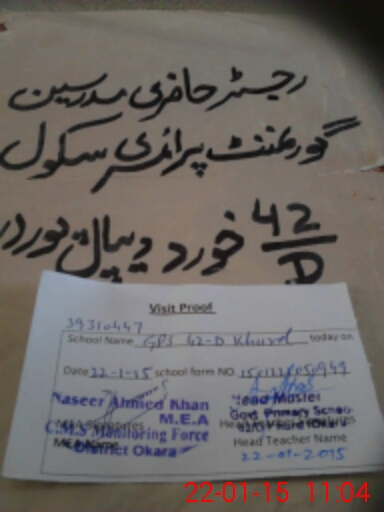 رجسٹر حاضری مدرسین
گورنمنٹ پرائمری سکول
42/D خورد دیپال پور
Visit Proof
39310447
School Name GPS 42-D Khurd today on
Date 22-1-15 school form NO.
Naseer Ahmed Khan
M.E.A
C.M.S Monitoring Force
District Okara
Head Master
Govt Primary School
42/D Khurd Okara
Head Teacher Name
22-01-2015
22-01-15 11:04